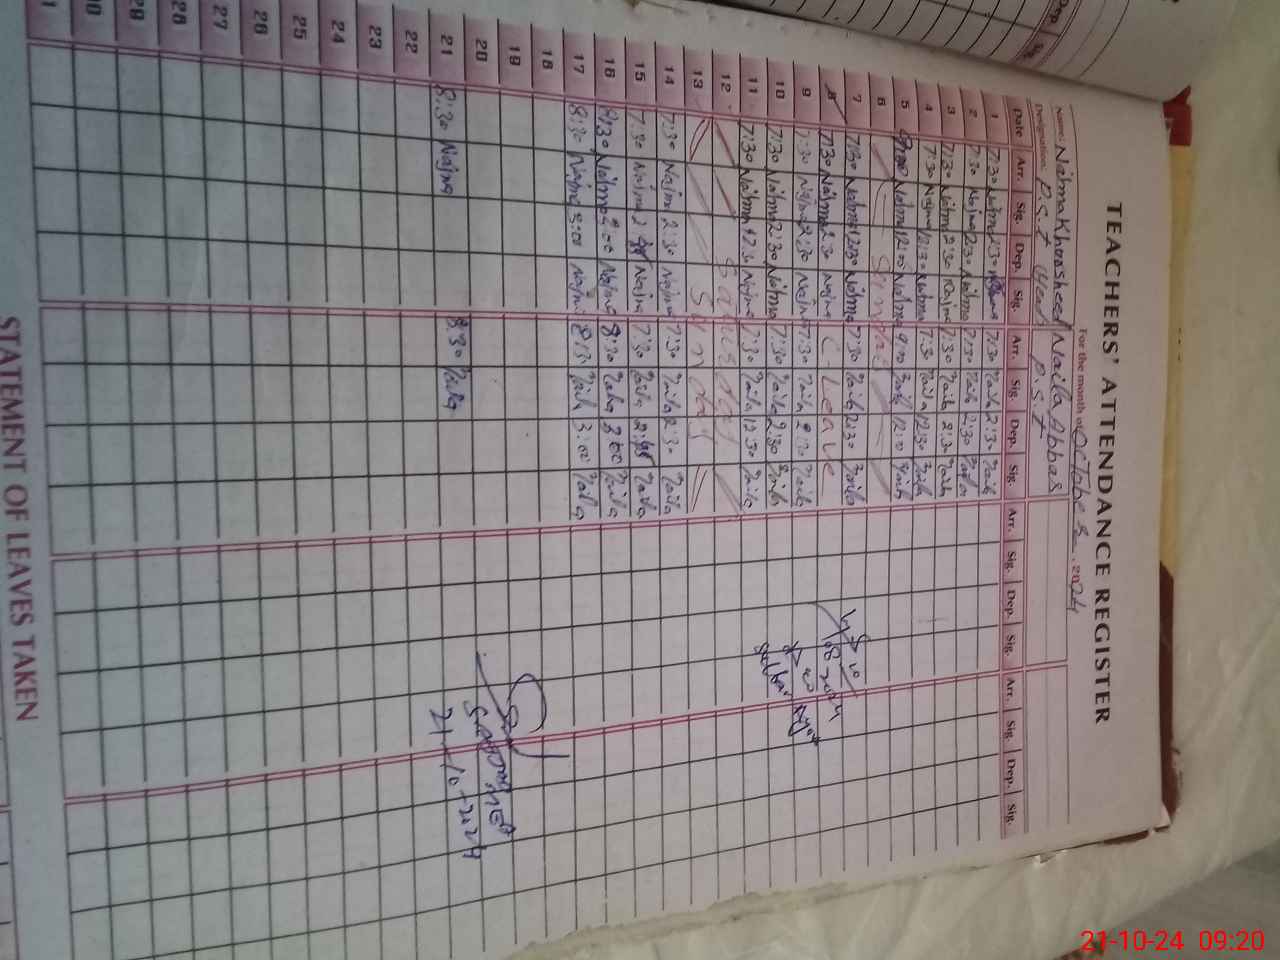 TEACHERS' ATTENDANCE REGISTER
For the month of October, 2024
Name: Najma Khorsheed Naila Abbas
Designation P.S.T Head P.S.T
Date Arr. Sig. Dep. Sig. Arr. Sig. Dep. Sig. Arr. Sig. Dep. Sig. Arr. Sig. Dep. Sig.
1 7:30 Najma 2:30 7:30 Naila 2:30 Naila
2 7:30 Najma 2:30 Najma 7:30 Naila 2:30 Naila
3 7:30 Najma 2:30 Najma 7:30 Naila 2:30 Naila
4 7:30 Najma 12:30 Najma 7:30 Naila 12:30 Naila
5 Najma 12:00 Najma 9:00 Naila 12:00 Naila
6 Sunday
7 7:30 Najma 2:30 Najma 7:30 Naila 2:30 Naila
8 7:30 Najma 2:30 Najma C-Leave
9 7:30 Najma 2:30 Najma 7:30 Naila 2:30 Naila
10 7:30 Najma 2:30 Najma 7:30 Naila 2:30 Naila
11 7:30 Najma 12:30 Najma 7:30 Naila 12:30 Naila
12 Saturday
13 Sunday
14 7:30 Najma 2:30 Najma 7:30 Naila 2:30 Naila
15 7:30 Najma Najma 7:30 Naila Naila
16 8:30 Najma 3:00 Najma 8:30 Naila 3:00 Naila
17 8:30 Najma 3:00 Najma 8:30 Naila 3:00 Naila
18
19
20
21 8:30 Najma 8:30 Naila
21-10-2024
22
23
24
25
26
27
28
29
30
STATEMENT OF LEAVES TAKEN
Dep. Sig.
21-10-24 09:20